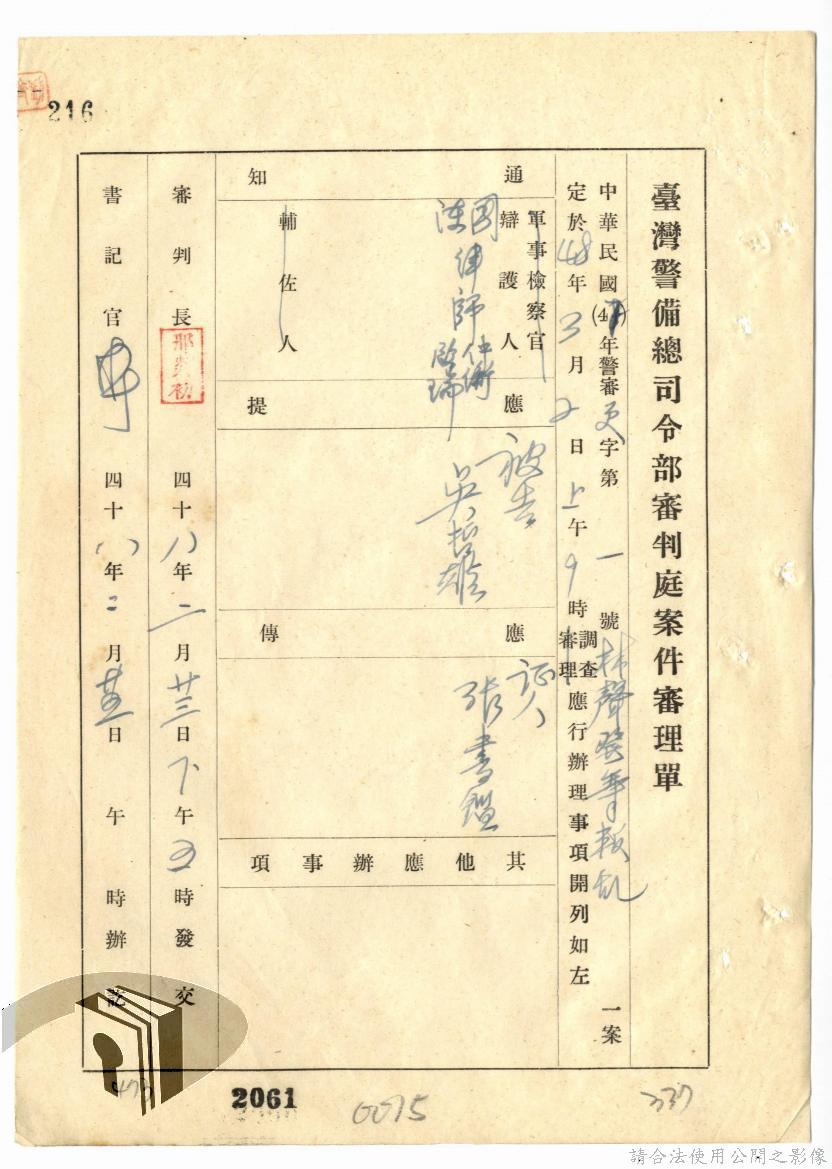 216
臺灣警備總司令部審判庭案件審理單
中華民國(47)年警審更字第一號林聲發等叛亂一案
定於48年3月2日上午9時調查審理應行辦理事項開列如左
通知
軍事檢察官
辯護人
輔佐人
應提
被告
吳振雄
應傳
証人
張書鑑
其他應辦事項
審判長 四十八年二月廿三日下午五時發交
書記官 四十八年二月廿五日午時辦訖
2061
0075
337
請合法使用公開之影像